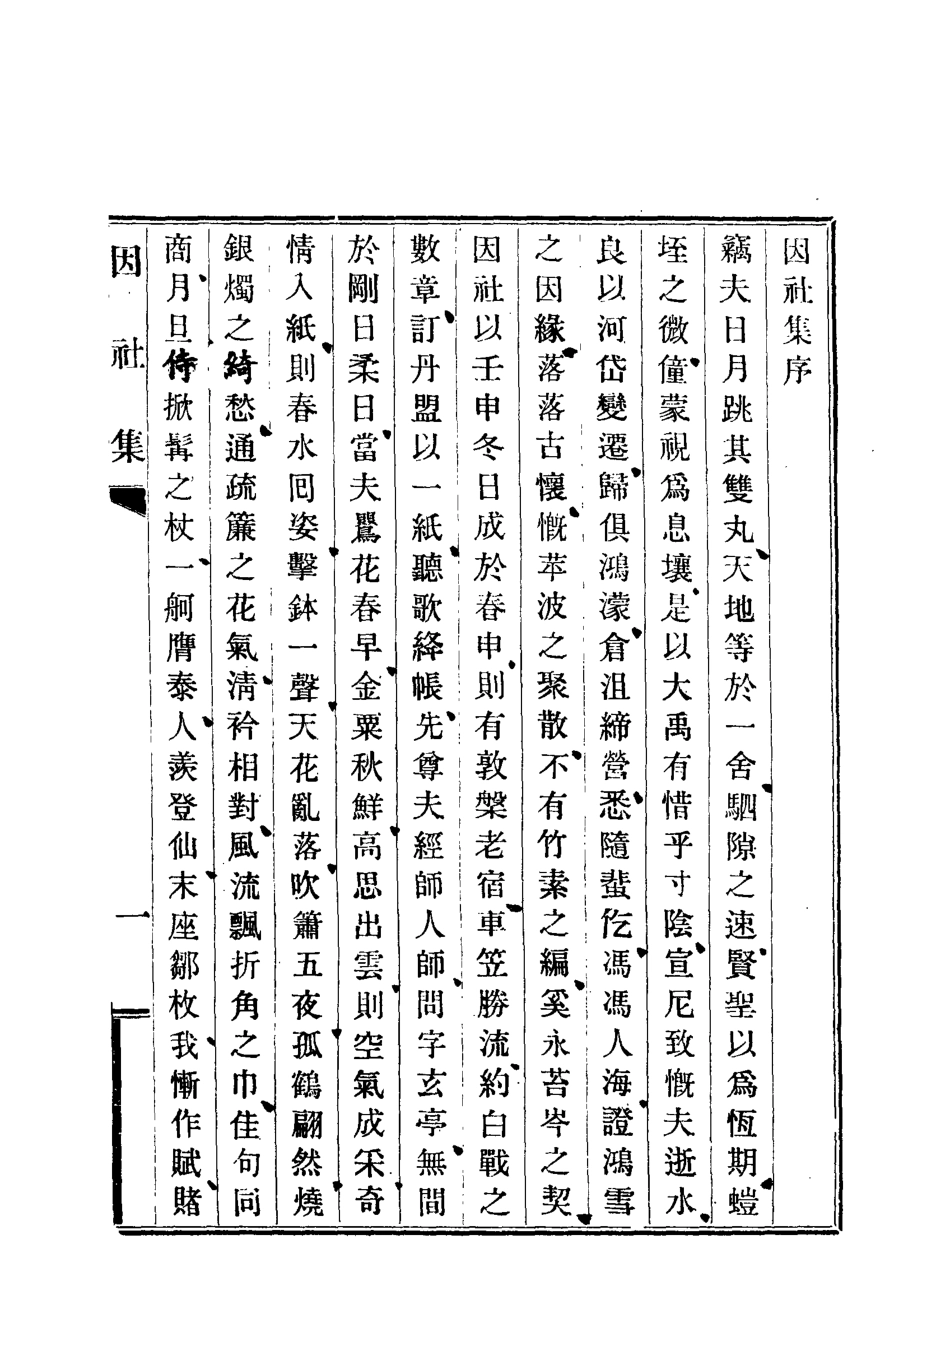 因社集序
竊夫日月跳其雙丸、天地等於一舍、駟隙之速、賢聖以爲恆期、螘
垤之微、僮蒙視爲息壤、是以大禹有惜乎寸陰、宣尼致慨夫逝水、
良以河岱變遷、歸俱鴻濛、倉沮締營、悉隨蜚仡、馮馮人海、證鴻雪
之因緣、落落古懷、慨萃波之聚散、不有竹素之編、奚永苔岑之契、
因社以壬申冬日成於春申、則有敦槃老宿、車笠勝流、約白戰之
數章、訂丹盟以一紙、聽歌絳帳、先尊夫經師人師、問字玄亭、無間
於剛日柔日、當夫鸎花春早、金粟秋鮮、高思出雲、則空氣成采、奇
情入紙、則春水囘姿、擊鉢一聲、天花亂落、吹簫五夜、孤鶴翩然、燒
銀燭之綺愁、通疏簾之花氣、清衿相對、風流飄折角之巾、佳句同
商、月旦侍掀髯之杖、一舸膺泰、人羨登仙、末座鄒枚、我慚作賦、賭
因社集
一